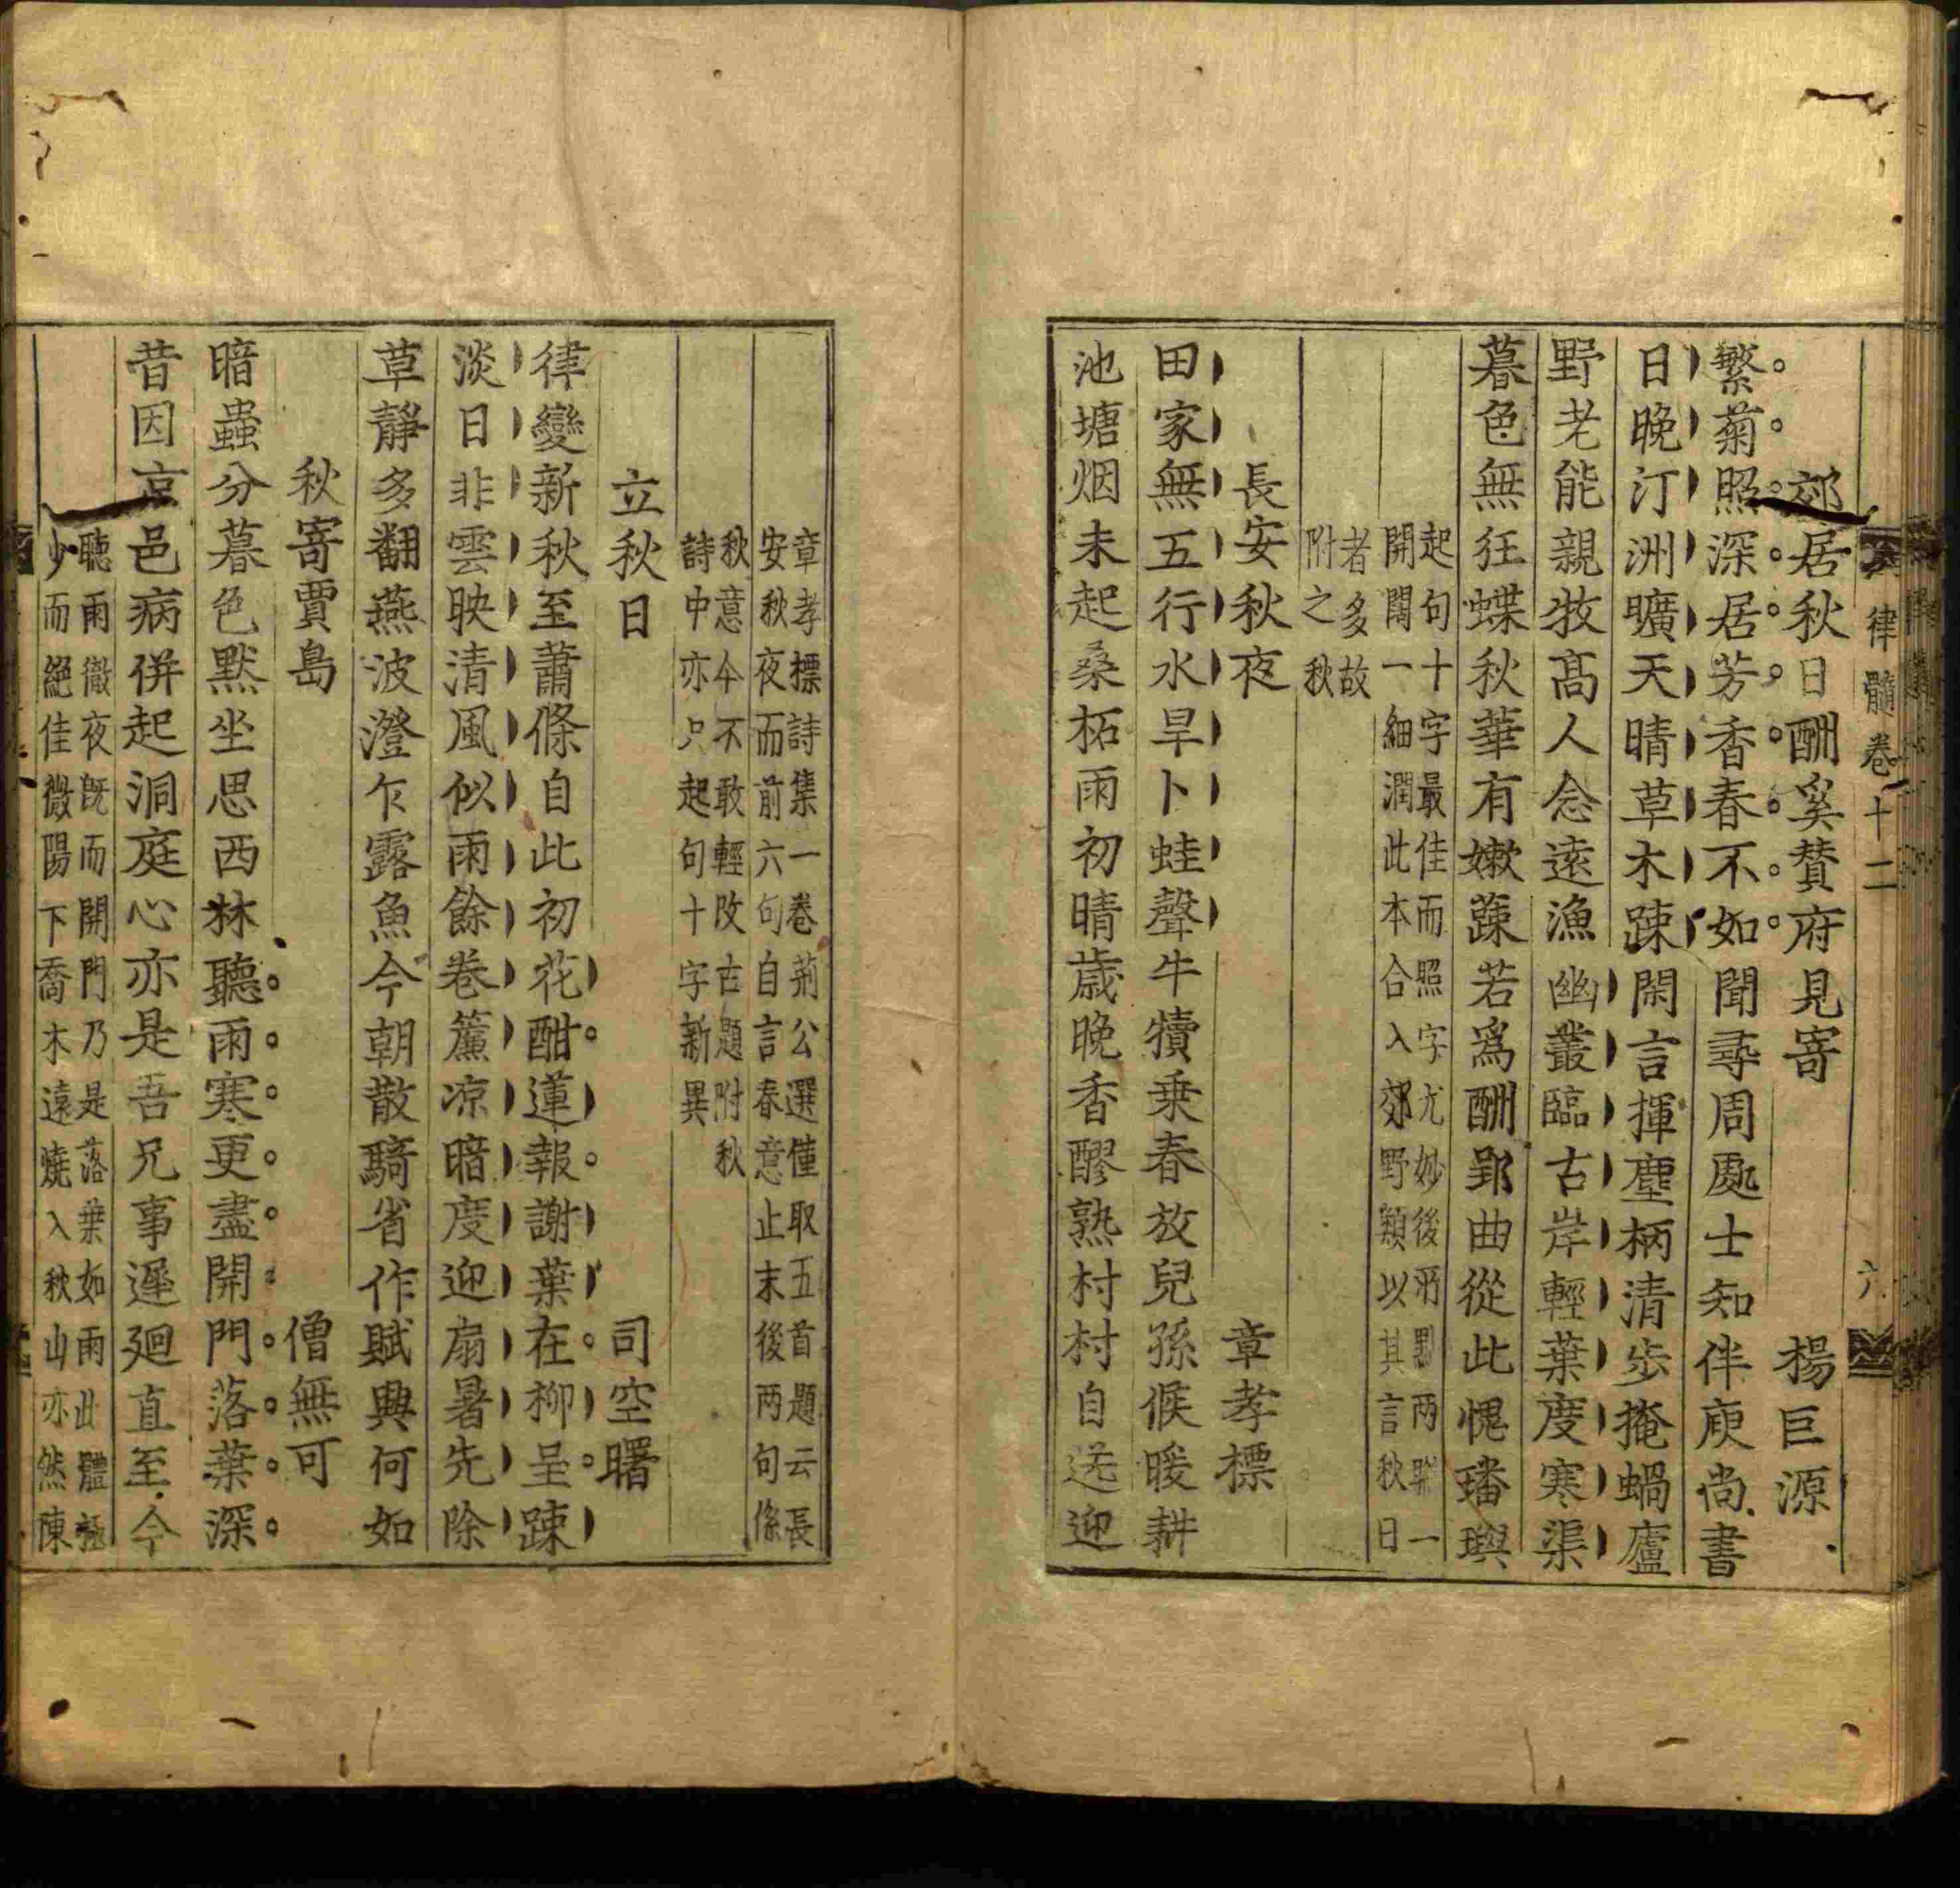 律髓卷十二
六
郊居秋日酬奚贊府見寄 楊巨源
繁菊照深居芳香春不如聞尋周處士知伴庾尚書
日晚汀洲曠天晴草木踈閑言揮麈柄清步掩蝸廬
野老能親牧髙人念遠漁幽叢臨古岸輕葉度寒渠
暮色無狂蝶秋華有嫩蔬若爲酬郢曲從此愧璠璵
起句十字最佳而照字尤妙後所點两聯一
開闔一細潤此本合入郊野類以其言秋日
者多故
附之秋
長安秋夜 章孝標
田家無五行水旱卜蛙聲牛犢乗春放兒孫候暖耕
池塘烟未起桑柘雨初晴歳晚香醪熟村村自送迎
章孝標詩集一卷荊公選僅取五首題云長
安秋夜而前六句自言春意止末後两句係
秋意今不敢輕改古題附秋
詩中亦只起句十字新異
立秋日 司空曙
律變新秋至蕭條自此初花酣蓮報謝葉在柳呈踈
淡日非雲映清風似雨餘卷簾凉暗度迎扇暑先除
草靜多翻燕波澄乍露魚今朝散騎省作賦興何如
秋寄賈島 僧無可
暗蟲分暮色黙坐思西林聽雨寒更盡開門落葉深
昔因京邑病併起洞庭心亦是吾兄事遲廻直至今
聽雨徹夜旣而開門乃是落葉如雨此體極
少而絕佳微陽下喬木遠燒入秋山亦然陳